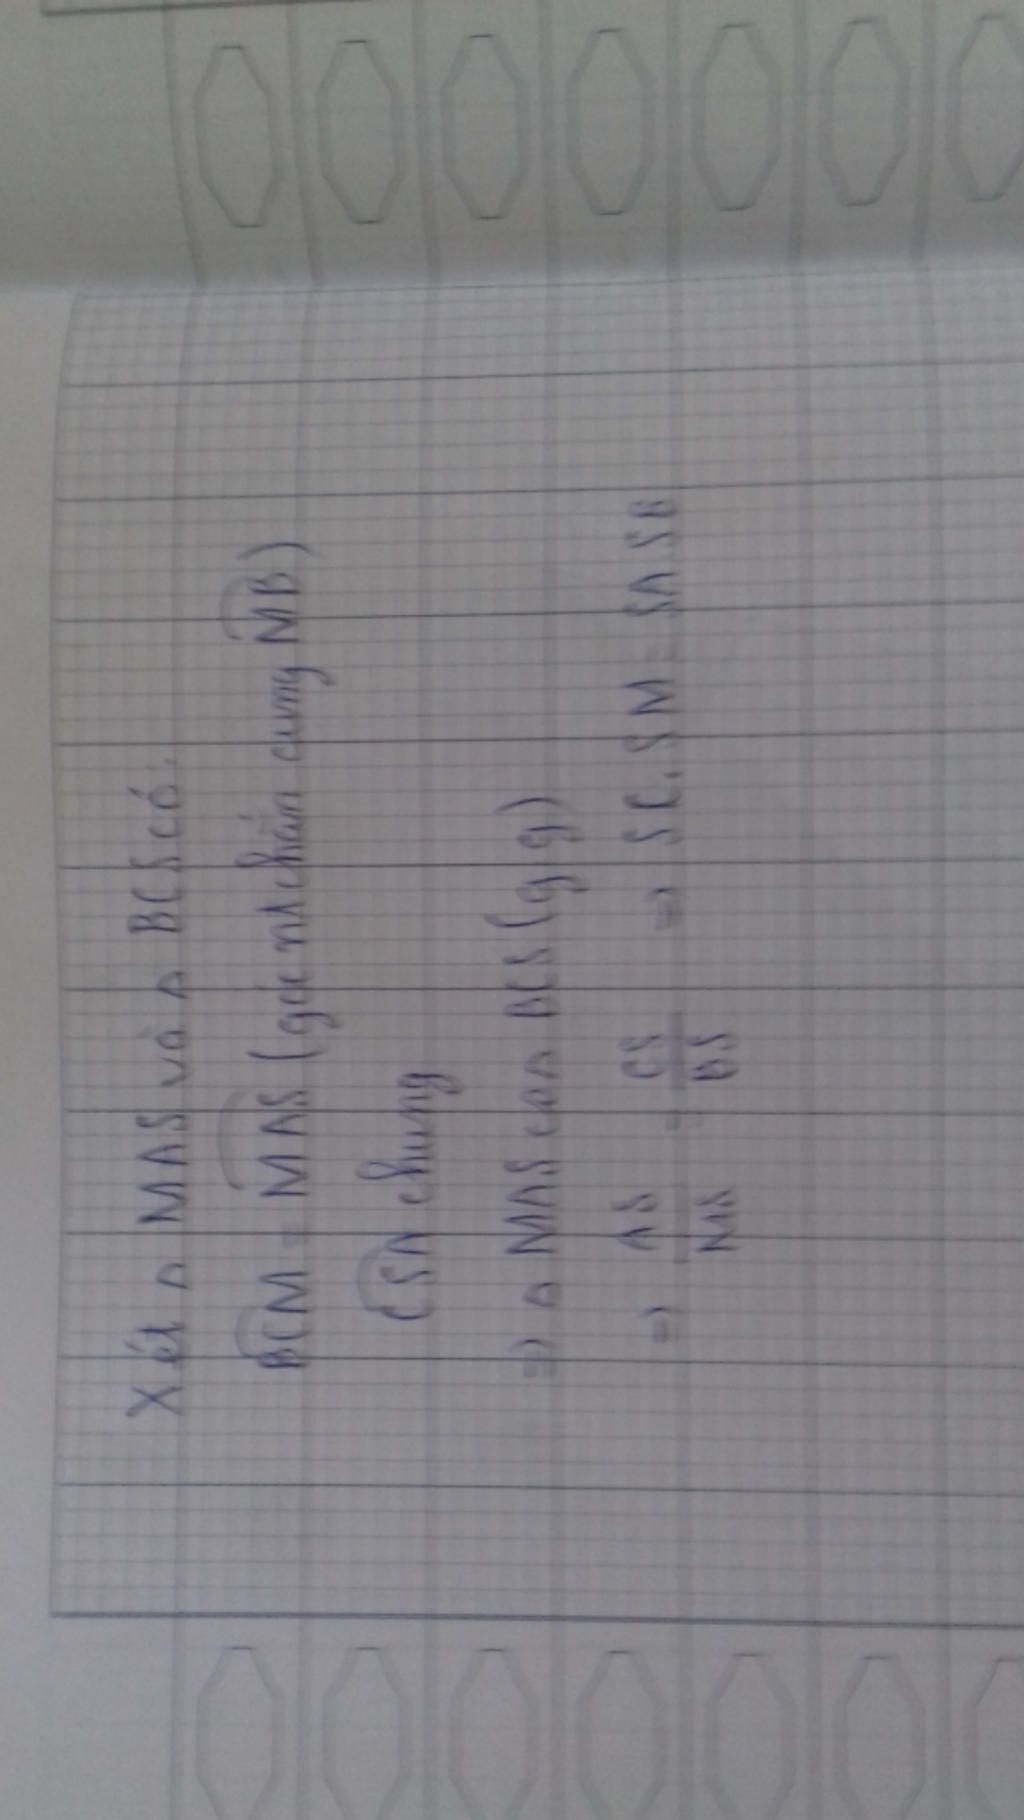 Xét Δ MAS và Δ BCS có:
BCM = MAS (góc nt chắn cung MB)
CSA chung
=> Δ MAS ∽ Δ BCS (g.g)
=> AS/MS = CS/BS => SC.SM = SA.SB